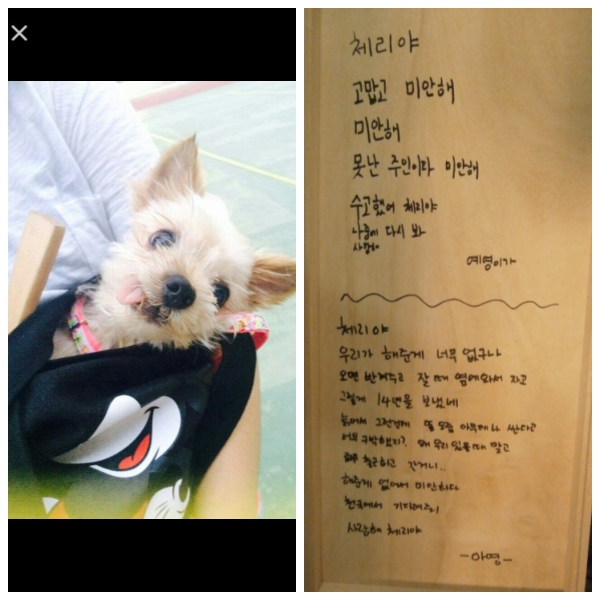 체리야
고맙고 미안해
미안해
못난 주인이라 미안해
수고했어 체리야
나중에 다시 봐
사랑해
예영이가
체리야
우리가 해준게 너무 없구나
오면 반겨주고 잘때 옆에와서 자고
그렇게 14년을 보냈네
늙어서 그런건데 똥 오줌 아무데나 싼다고
너무 구박했지? 왜 우리 있을때 말고
출근하고 갔거니..
해준게 없어서 미안하다
천국에서 기다려주니
사랑해 체리야
-아영-